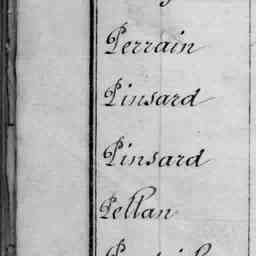 Perrain
Pinsard
Pinsard
Pellan